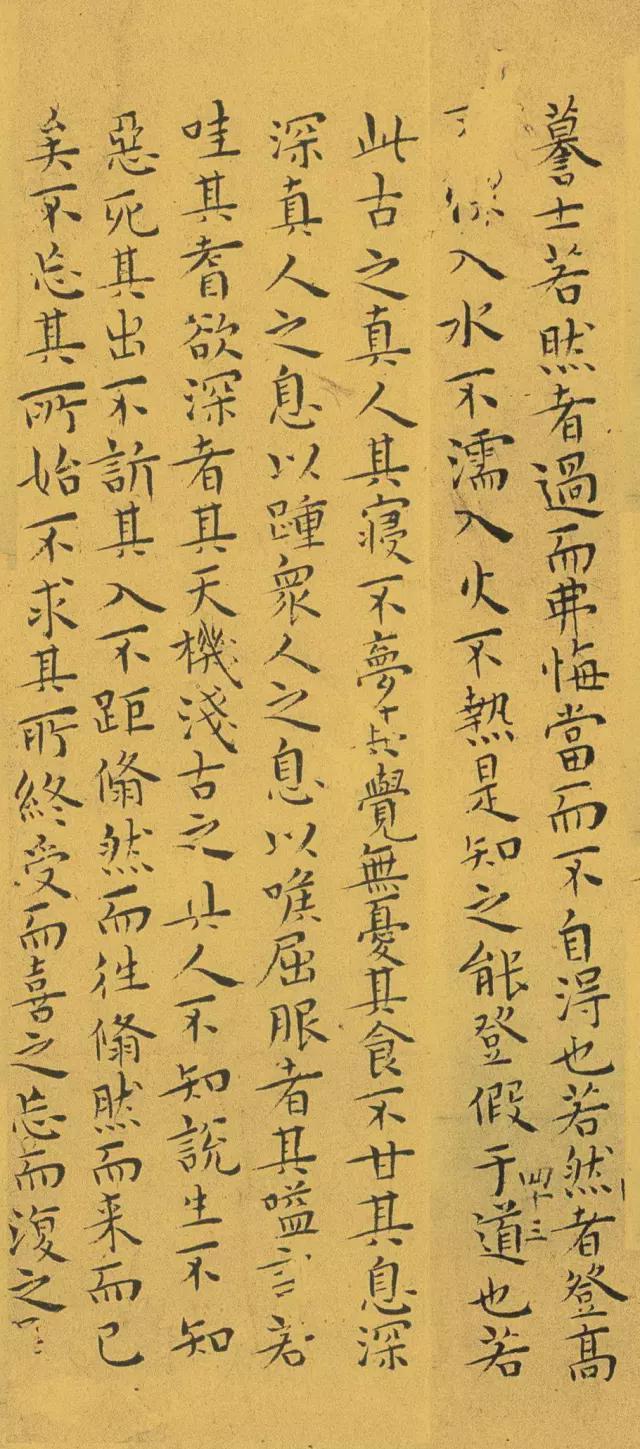 謩士若然者過而弗悔當而不自得也若然者登高
入水不濡入火不熱是知之能登假于道也若
四十三
此古之真人其寢不夢其覺無憂其食不甘其息深
深真人之息以踵眾人之息以喉屈服者其嗌言若
哇其耆欲深者其天機淺古之真人不知說生不知
惡死其出不訢其入不距翛然而往翛然而来而已
矣不忘其所始不求其所終受而喜之忘而復之